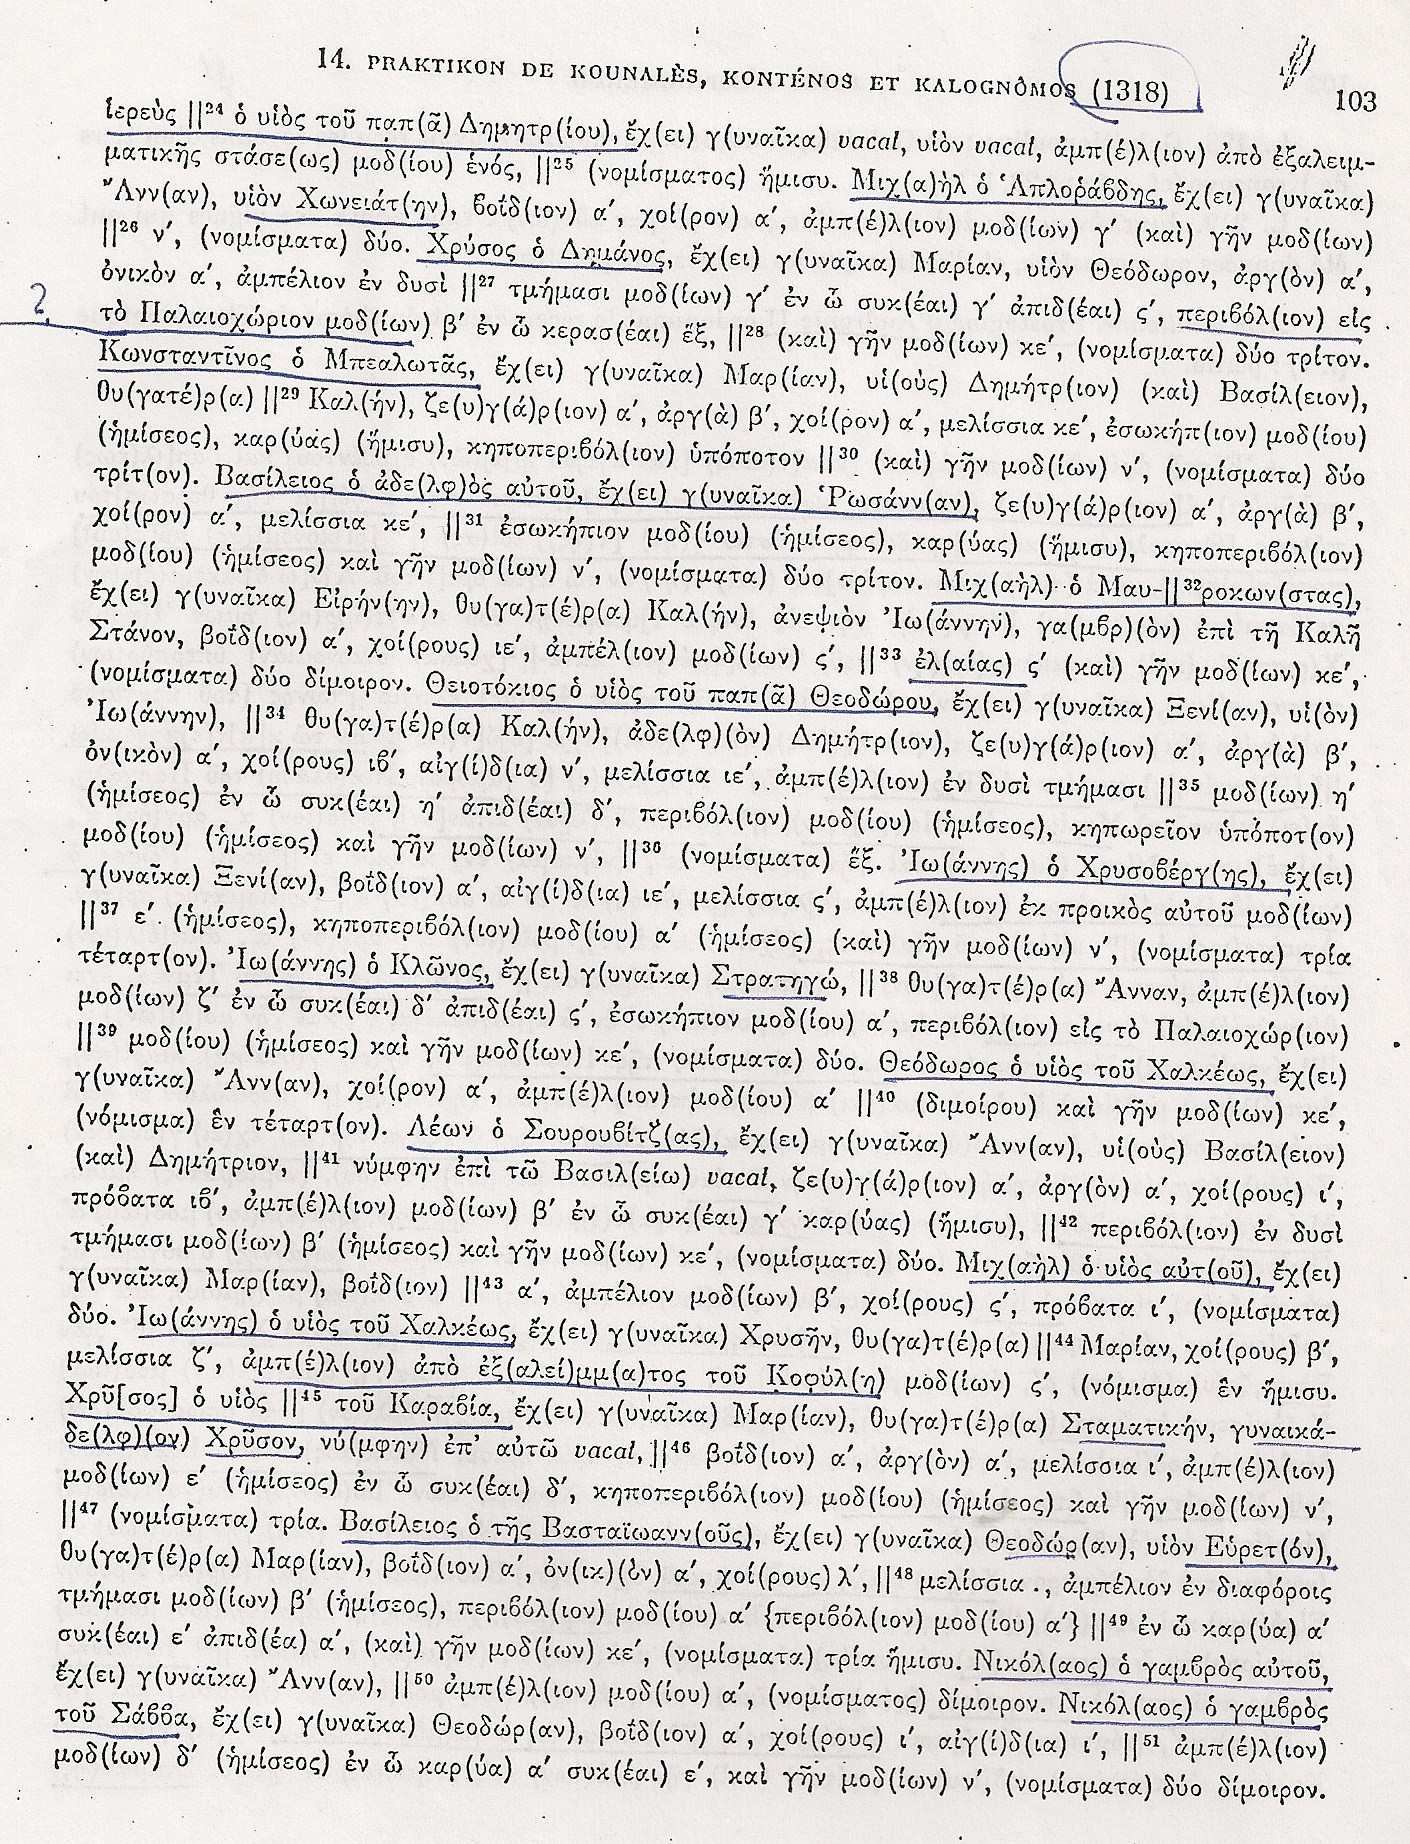 14. PRAKTIKON DE KOUNALÈS, KONTÉNOS ET KALOGNÔMOS (1318) 103
ἱερεὺς ||²⁴ ὁ υἱὸς τοῦ παπ(ᾶ) Δημητρ(ίου), ἔχ(ει) γ(υναῖκα) vacat, υἱὸν vacat, ἀμπ(έ)λ(ιον) ἀπὸ ἐξαλειμ-
ματικῆς στάσε(ως) μοδ(ίου) ἑνός, ||²⁵ (νομίσματος) ἥμισυ. Μιχ(α)ὴλ ὁ Ἁπλοράβδης, ἔχ(ει) γ(υναῖκα)
Ἄνν(αν), υἱὸν Χωνειάτ(ην), βοΐδ(ιον) α′, χοί(ρον) α′, ἀμπ(έ)λ(ιον) μοδ(ίων) γ′ (καὶ) γῆν μοδ(ίων)
||²⁶ ν′, (νομίσματα) δύο. Χρύσος ὁ Δημάνος, ἔχ(ει) γ(υναῖκα) Μαρίαν, υἱὸν Θεόδωρον, ἀργ(ὸν) α′,
ὀνικὸν α′, ἀμπέλιον ἐν δυσὶ ||²⁷ τμήμασι μοδ(ίων) γ′ ἐν ᾧ συκ(έαι) γ′ ἀπιδ(έαι) ς′, περιβόλ(ιον) εἰς
2
τὸ Παλαιοχώριον μοδ(ίων) β′ ἐν ᾧ κερασ(έαι) ἕξ, ||²⁸ (καὶ) γῆν μοδ(ίων) κε′, (νομίσματα) δύο τρίτον.
Κωνσταντῖνος ὁ Μπεαλωτᾶς, ἔχ(ει) γ(υναῖκα) Μαρ(ίαν), υἱ(οὺς) Δημήτρ(ιον) (καὶ) Βασίλ(ειον),
θυ(γατέ)ρ(α) ||²⁹ Καλ(ήν), ζε(υ)γ(ά)ρ(ιον) α′, ἀργ(ὰ) β′, χοί(ρον) α′, μελίσσια κε′, ἐσωκήπ(ιον) μοδ(ίου)
(ἡμίσεος), καρ(ύας) (ἥμισυ), κηποπεριβόλ(ιον) ὑπόποτον ||³⁰ (καὶ) γῆν μοδ(ίων) ν′, (νομίσματα) δύο
τρίτ(ον). Βασίλειος ὁ ἀδε(λφ)ὸς αὐτοῦ, ἔχ(ει) γ(υναῖκα) Ῥωσάνν(αν), ζε(υ)γ(ά)ρ(ιον) α′, ἀργ(ὰ) β′,
χοί(ρον) α′, μελίσσια κε′, ||³¹ ἐσωκήπιον μοδ(ίου) (ἡμίσεος), καρ(ύας) (ἥμισυ), κηποπεριβόλ(ιον)
μοδ(ίου) (ἡμίσεος) καὶ γῆν μοδ(ίων) ν′, (νομίσματα) δύο τρίτον. Μιχ(αὴλ) ὁ Μαυ-||³²ροκων(στας),
ἔχ(ει) γ(υναῖκα) Εἰρήν(ην), θυ(γα)τ(έ)ρ(α) Καλ(ήν), ἀνεψιὸν Ἰω(άννην), γα(μβρ)(ὸν) ἐπὶ τῆ Καλῆ
Στάνον, βοΐδ(ιον) α′, χοί(ρους) ιε′, ἀμπέλ(ιον) μοδ(ίων) ς′, ||³³ ἐλ(αίας) ς′ (καὶ) γῆν μοδ(ίων) κε′,
(νομίσματα) δύο δίμοιρον. Θειοτόκιος ὁ υἱὸς τοῦ παπ(ᾶ) Θεοδώρου, ἔχ(ει) γ(υναῖκα) Ξενί(αν), υἱ(ὸν)
Ἰω(άννην), ||³⁴ θυ(γα)τ(έ)ρ(α) Καλ(ήν), ἀδε(λφ)(ὸν) Δημήτρ(ιον), ζε(υ)γ(ά)ρ(ιον) α′, ἀργ(ὰ) β′,
ὀν(ικὸν) α′, χοί(ρους) ιβ′, αἰγ(ί)δ(ια) ν′, μελίσσια ιε′, ἀμπ(έ)λ(ιον) ἐν δυσὶ τμήμασι ||³⁵ μοδ(ίων) η′
(ἡμίσεος) ἐν ᾧ συκ(έαι) η′ ἀπιδ(έαι) δ′, περιβόλ(ιον) μοδ(ίου) (ἡμίσεος), κηπωρεῖον ὑπόποτ(ον)
μοδ(ίου) (ἡμίσεος) καὶ γῆν μοδ(ίων) ν′, ||³⁶ (νομίσματα) ἕξ. Ἰω(άννης) ὁ Χρυσοβέργ(ης), ἔχ(ει)
γ(υναῖκα) Ξενί(αν), βοΐδ(ιον) α′, αἰγ(ί)δ(ια) ιε′, μελίσσια ς′, ἀμπ(έ)λ(ιον) ἐκ προικὸς αὐτοῦ μοδ(ίων)
||³⁷ ε′ (ἡμίσεος), κηποπεριβόλ(ιον) μοδ(ίου) α′ (ἡμίσεος) (καὶ) γῆν μοδ(ίων) ν′, (νομίσματα) τρία
τέταρτ(ον). Ἰω(άννης) ὁ Κλῶνος, ἔχ(ει) γ(υναῖκα) Στρατηγώ, ||³⁸ θυ(γα)τ(έ)ρ(α) Ἄνναν, ἀμπ(έ)λ(ιον)
μοδ(ίων) ζ′ ἐν ᾧ συκ(έαι) δ′ ἀπιδ(έαι) ς′, ἐσωκήπιον μοδ(ίου) α′, περιβόλ(ιον) εἰς τὸ Παλαιοχώρ(ιον)
||³⁹ μοδ(ίου) (ἡμίσεος) καὶ γῆν μοδ(ίων) κε′, (νομίσματα) δύο. Θεόδωρος ὁ υἱὸς τοῦ Χαλκέως, ἔχ(ει)
γ(υναῖκα) Ἄνν(αν), χοί(ρον) α′, ἀμπ(έ)λ(ιον) μοδ(ίου) α′ ||⁴⁰ (διμοίρου) καὶ γῆν μοδ(ίων) κε′,
(νόμισμα) ἓν τέταρτ(ον). Λέων ὁ Σουρουβίτζ(ας), ἔχ(ει) γ(υναῖκα) Ἄνν(αν), υἱ(οὺς) Βασίλ(ειον)
(καὶ) Δημήτριον, ||⁴¹ νύμφην ἐπὶ τῶ Βασιλ(είω) vacat, ζε(υ)γ(ά)ρ(ιον) α′, ἀργ(ὸν) α′, χοί(ρους) ι′,
πρόβατα ιβ′, ἀμπ(έ)λ(ιον) μοδ(ίων) β′ ἐν ᾧ συκ(έαι) γ′ καρ(ύας) (ἥμισυ), ||⁴² περιβόλ(ιον) ἐν δυσὶ
τμήμασι μοδ(ίων) β′ (ἡμίσεος) καὶ γῆν μοδ(ίων) κε′, (νομίσματα) δύο. Μιχ(αὴλ) ὁ υἱὸς αὐτ(οῦ), ἔχ(ει)
γ(υναῖκα) Μαρ(ίαν), βοΐδ(ιον) ||⁴³ α′, ἀμπέλιον μοδ(ίων) β′, χοί(ρους) ς′, πρόβατα ι′, (νομίσματα)
δύο. Ἰω(άννης) ὁ υἱὸς τοῦ Χαλκέως, ἔχ(ει) γ(υναῖκα) Χρυσῆν, θυ(γα)τ(έ)ρ(α) ||⁴⁴ Μαρίαν, χοί(ρους) β′,
μελίσσια ζ′, ἀμπ(έ)λ(ιον) ἀπὸ ἐξ(αλεί)μμ(α)τος τοῦ Κοφύλ(η) μοδ(ίων) ς′, (νόμισμα) ἓν ἥμισυ.
Χρῦ[σος] ὁ υἱὸς ||⁴⁵ τοῦ Καραβία, ἔχ(ει) γ(υναῖκα) Μαρ(ίαν), θυ(γα)τ(έ)ρ(α) Σταματικήν, γυναικά-
δε(λφ)(ον) Χρῦσον, νύ(μφην) ἐπ' αὐτῶ vacat, ||⁴⁶ βοΐδ(ιον) α′, ἀργ(ὸν) α′, μελίσσια ι′, ἀμπ(έ)λ(ιον)
μοδ(ίων) ε′ (ἡμίσεος) ἐν ᾧ συκ(έαι) δ′, κηποπεριβόλ(ιον) μοδ(ίου) (ἡμίσεος) καὶ γῆν μοδ(ίων) ν′,
||⁴⁷ (νομίσματα) τρία. Βασίλειος ὁ τῆς Βασταϊωανν(οῦς), ἔχ(ει) γ(υναῖκα) Θεοδώρ(αν), υἱὸν Εὑρετ(όν),
θυ(γα)τ(έ)ρ(α) Μαρ(ίαν), βοΐδ(ιον) α′, ὀν(ικ)(ὸν) α′, χοί(ρους) λ′, ||⁴⁸ μελίσσια ., ἀμπέλιον ἐν διαφόροις
τμήμασι μοδ(ίων) β′ (ἡμίσεος), περιβόλ(ιον) μοδ(ίου) α′ {περιβόλ(ιον) μοδ(ίου) α′} ||⁴⁹ ἐν ᾧ καρ(ύα) α′
συκ(έαι) ε′ ἀπιδ(έα) α′, (καὶ) γῆν μοδ(ίων) κε′, (νομίσματα) τρία ἥμισυ. Νικόλ(αος) ὁ γαμβρὸς αὐτοῦ,
ἔχ(ει) γ(υναῖκα) Ἄνν(αν), ||⁵⁰ ἀμπ(έ)λ(ιον) μοδ(ίου) α′, (νομίσματος) δίμοιρον. Νικόλ(αος) ὁ γαμβρὸς
τοῦ Σάββα, ἔχ(ει) γ(υναῖκα) Θεοδώρ(αν), βοΐδ(ιον) α′, χοί(ρους) ι′, αἰγ(ί)δ(ια) ι′, ||⁵¹ ἀμπ(έ)λ(ιον)
μοδ(ίων) δ′ (ἡμίσεος) ἐν ᾧ καρ(ύα) α′ συκ(έαι) ε′, καὶ γῆν μοδ(ίων) ν′, (νομίσματα) δύο δίμοιρον.